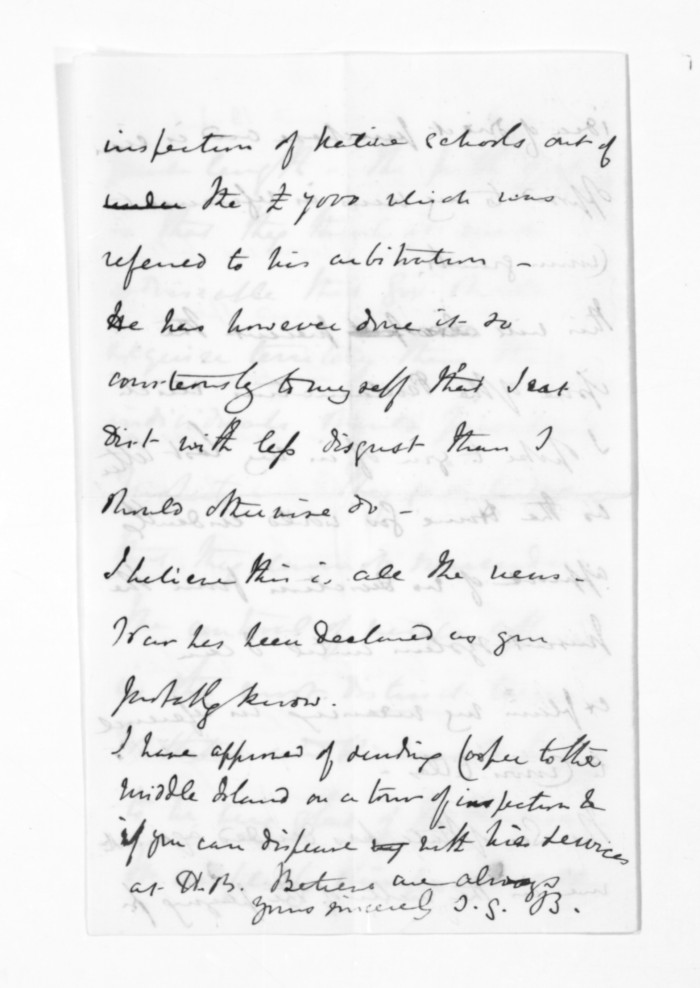 inspection of native schools out of
under the £7000 which was
referred to his arbitration –
He has however done it so
courteously to myself that I eat
dirt with less disgust than I
should otherwise do –
I believe this is all the news –
War has been declared as you
probably know.
I have approved of sending Cooper to the
Middle Island on a tour of inspection &
if you can dispense with his services
at H.B. Believe me always
yours sincerely T. G. B.